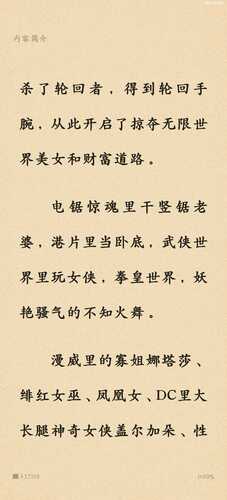 内容简介
杀了轮回者，得到轮回手
腕，从此开启了掠夺无限世
界美女和财富道路。
电锯惊魂里干竖锯老
婆，港片里当卧底，武侠世
界里玩女侠，拳皇世界，妖
艳骚气的不知火舞。
漫威里的寡姐娜塔莎、
绯红女巫、凤凰女、DC里大
长腿神奇女侠盖尔加朵、性